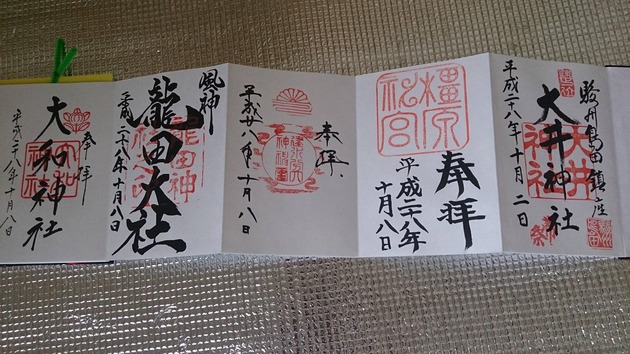 駿州島田鎮座
大井神社
大井神社
平成二十八年十月二日
奉拝
橿原神宮
平成二十八年
十月八日
奉拝
平成廿八年十月八日
風神
龍田大社
平成二十八年十月八日
奉拝
大和神社
平成二十八年十月八日